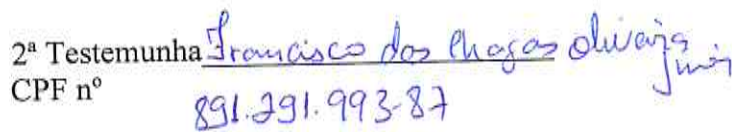 2ª Testemunha Francisco das Chagas Oliveira Junior
CPF nº 891.291.993-87